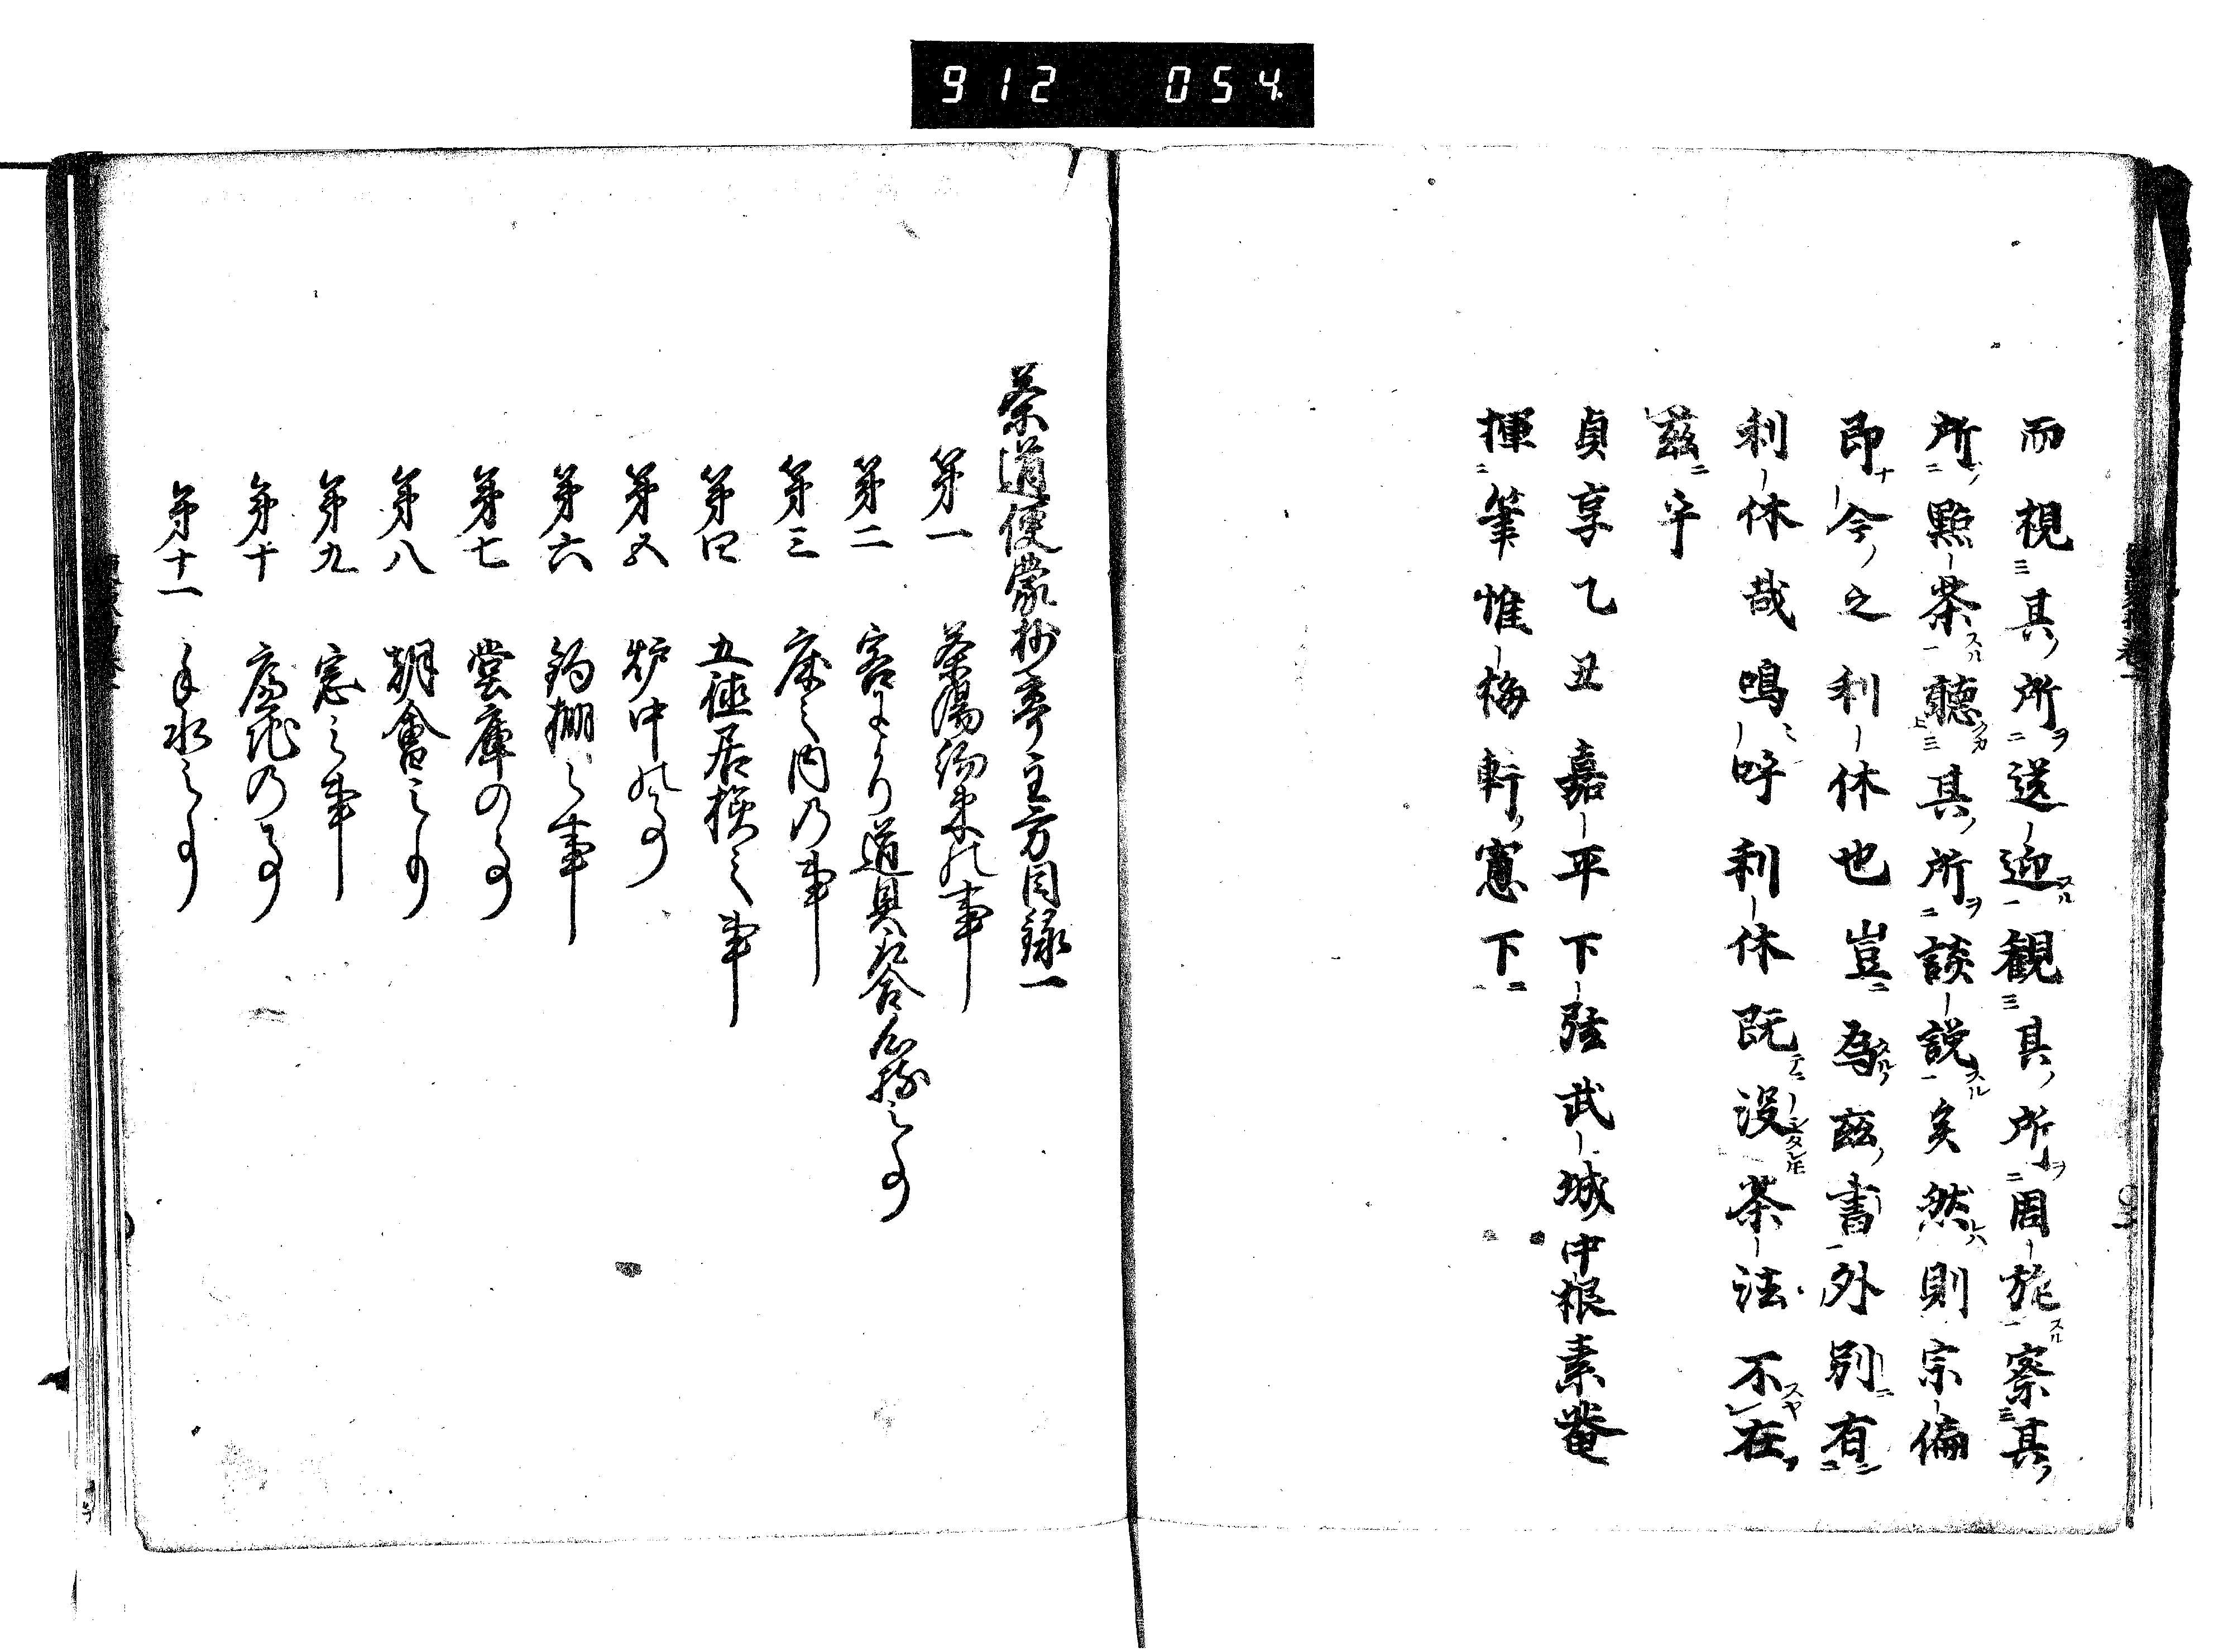 912 054
而視其所送迎観其所周旋察其
所點茶聴其所談説矣然則宗偏
即今之利休也豈為茲書外別有
利休哉嗚呼利休既没茶法不在
茲乎
貞享乙丑嘉平下弦武城中根素菴
揮筆惟梅軒窓下
茶道便蒙抄亭主方目録一
第一 茶湯約束の事
第二 客より道具 之事
第三 床之内の事
第四 五徳居様之事
第五 炉中の事
第六 釣棚之事
第七 堂庫の事
第八 朝會之事
第九 窓之事
第十 の事
第十一 手水之事